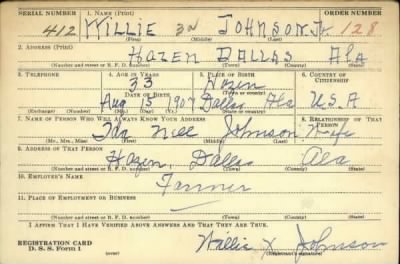 SERIAL NUMBER 1. NAME (Print) ORDER NUMBER
412 WILLIE JOHNSON Jr. 128
(First) (Middle) (Last)
2. ADDRESS (Print)
HAZEN DALLAS ALA
(Number and street or R. F. D. number) (Town) (County) (State)
3. TELEPHONE 4. AGE IN YEARS 5. PLACE OF BIRTH 6. COUNTRY OF CITIZENSHIP
33 Hazen
DATE OF BIRTH
Aug 15 1907 Dallas Ala U.S.A
(Exchange) (Number) (Mo.) (Day) (Yr.) (Town) (County) (State)
7. NAME OF PERSON WHO WILL ALWAYS KNOW YOUR ADDRESS 8. RELATIONSHIP OF THAT PERSON
Ida Johnson Wife
(Mr., Mrs., Miss) (First) (Middle) (Last)
9. ADDRESS OF THAT PERSON
Hazen, Dallas Ala
(Number and street or R. F. D. number) (Town) (County) (State)
10. EMPLOYER'S NAME
Farmer
11. PLACE OF EMPLOYMENT OR BUSINESS
(Number and street or R. F. D. number) (Town) (County) (State)
I AFFIRM THAT I HAVE VERIFIED ABOVE ANSWERS AND THAT THEY ARE TRUE.
REGISTRATION CARD
D. S. S. Form 1 Willie X Johnson